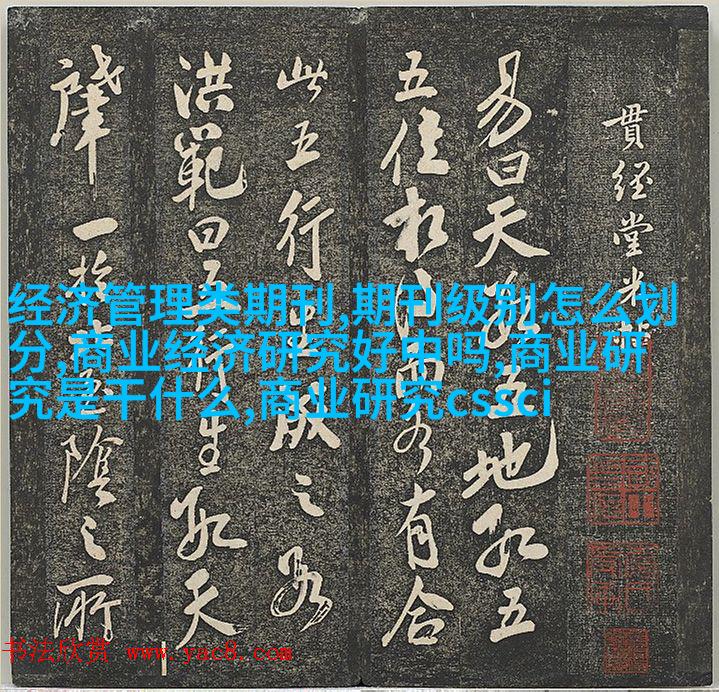 貫經堂米
易曰天數五地數五
五位相得而各有合
此五行生成之數
洪範曰五行生數天
肇一於陰之所
经济管理类期刊,期刊级别怎么划
分,商业经济研究好中吗,商业研
究是干什么,商业研究cssci
书法欣赏 www.yac8.com